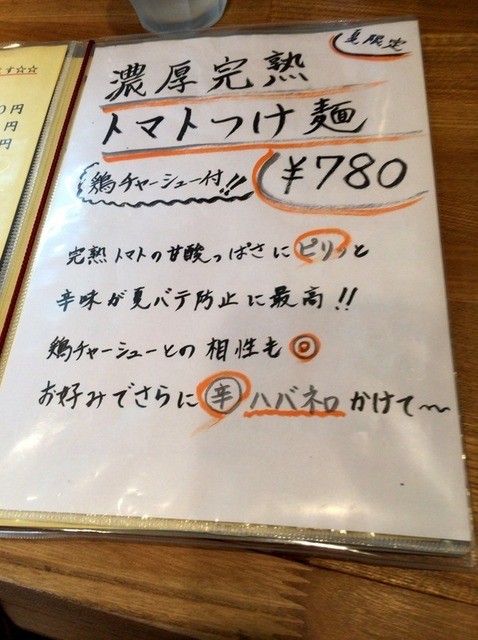 夏限定
濃厚完熟
トマトつけ麺
鶏チャーシュー付!!
¥780
完熟トマトの甘酸っぱさにピリッと
辛味が夏バテ防止に最高!!
鶏チャーシューとの相性も◎
お好みでさらに辛ハバネロかけて〜
す☆☆
0円
円
円